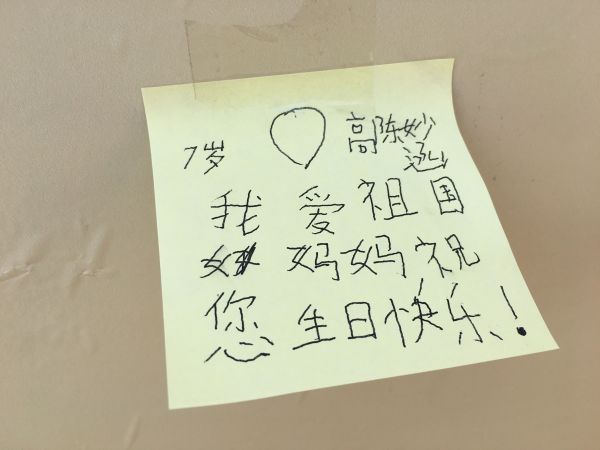 7岁 高陈妙
我爱祖国
妈妈祝
您生日快乐!